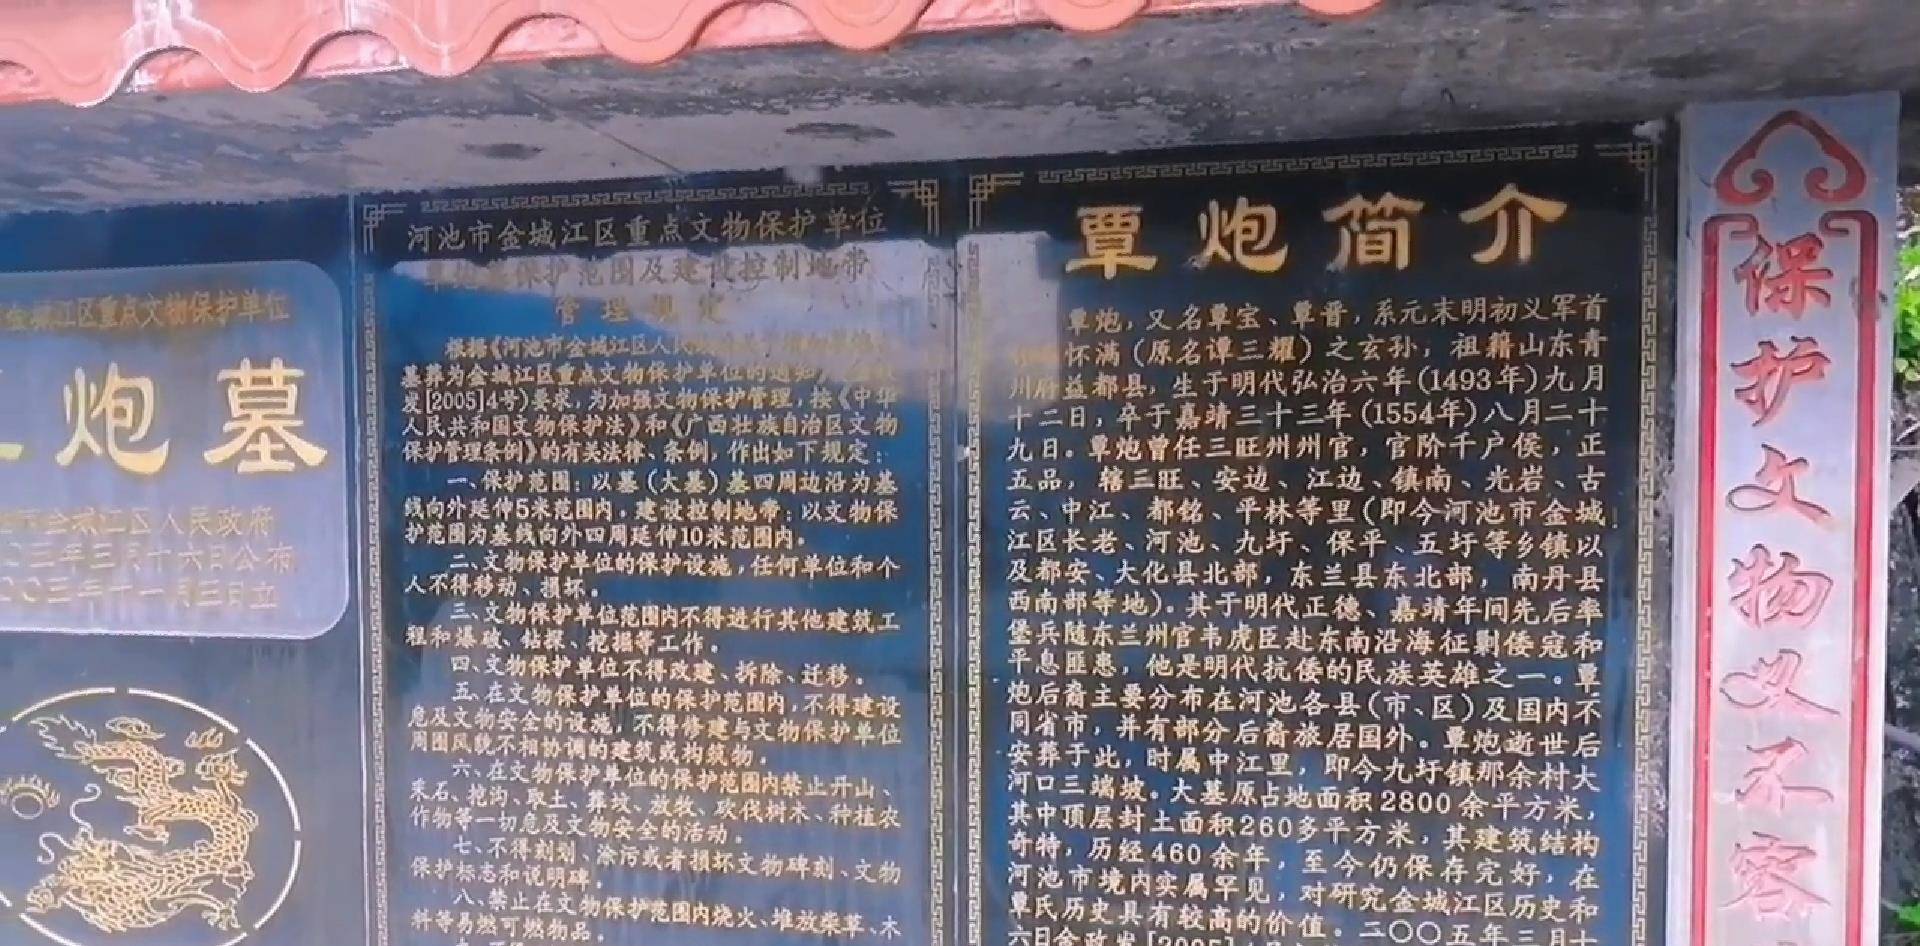 金城江区重点文物保护单位
炮墓
金城江区人民政府
三年三月十六日公布
〇〇三年十一月三日立
河池市金城江区重点文物保护单位
保护范围及建设控制地带
管理规定
根据《河池市金城江区人民
墓葬为金城江区重点文物保护单位的通知》
发[2005]4号)要求，为加强文物保护管理，按《中华
人民共和国文物保护法》和《广西壮族自治区文物
保护管理条例》的有关法律、条例，作出如下规定：
一、保护范围：以墓（大墓）基四周边沿为基
线向外延伸5米范围内，建设控制地带：以文物保
护范围为基线向外四周延伸10米范围内。
二、文物保护单位的保护设施，任何单位和个
人不得移动、损坏。
三、文物保护单位范围内不得进行其他建筑工
程和爆破、钻探、挖掘等工作。
四、文物保护单位不得改建、拆除、迁移。
五、在文物保护单位的保护范围内，不得建设
危及文物安全的设施，不得修建与文物保护单位
周围风貌不相协调的建筑或构筑物。
六、在文物保护单位的保护范围内禁止开山、
采石、挖沟、取土、葬坟、放牧、砍伐树木、种植农
作物等一切危及文物安全的活动。
七、不得刻划、涂污或者损坏文物碑刻、文物
保护标志和说明碑。
八、禁止在文物保护范围内烧火、堆放柴草、木
料等易燃可燃物品。
覃炮简介
覃炮，又名覃宝、覃晋，系元末明初义军首
怀满（原名谭三耀）之玄孙，祖籍山东青
州府益都县，生于明代弘治六年(1493年)九月
十二日，卒于嘉靖三十三年(1554年)八月二十
九日。覃炮曾任三旺州州官，官阶千户侯，正
五品，辖三旺、安边、江边、镇南、光岩、古
云、中江、都铭、平林等里（即今河池市金城
江区长老、河池、九圩、保平、五圩等乡镇以
及都安、大化县北部，东兰县东北部，南丹县
西南部等地）。其于明代正德、嘉靖年间先后率
堡兵随东兰州官韦虎臣赴东南沿海征剿倭寇和
平息匪患，他是明代抗倭的民族英雄之一。覃
炮后裔主要分布在河池各县（市、区）及国内不
同省市，并有部分后裔旅居国外。覃炮逝世后
安葬于此，时属中江里，即今九圩镇那余村大
河口三端坡。大墓原占地面积2800余平方米，
其中顶层封土面积260多平方米，其建筑结构
奇特，历经460余年，至今仍保存完好，在
河池市境内实属罕见，对研究金城江区历史和
覃氏历史具有较高的价值。二〇〇五年三月十
六日金政发[2005]
保护文物义不容